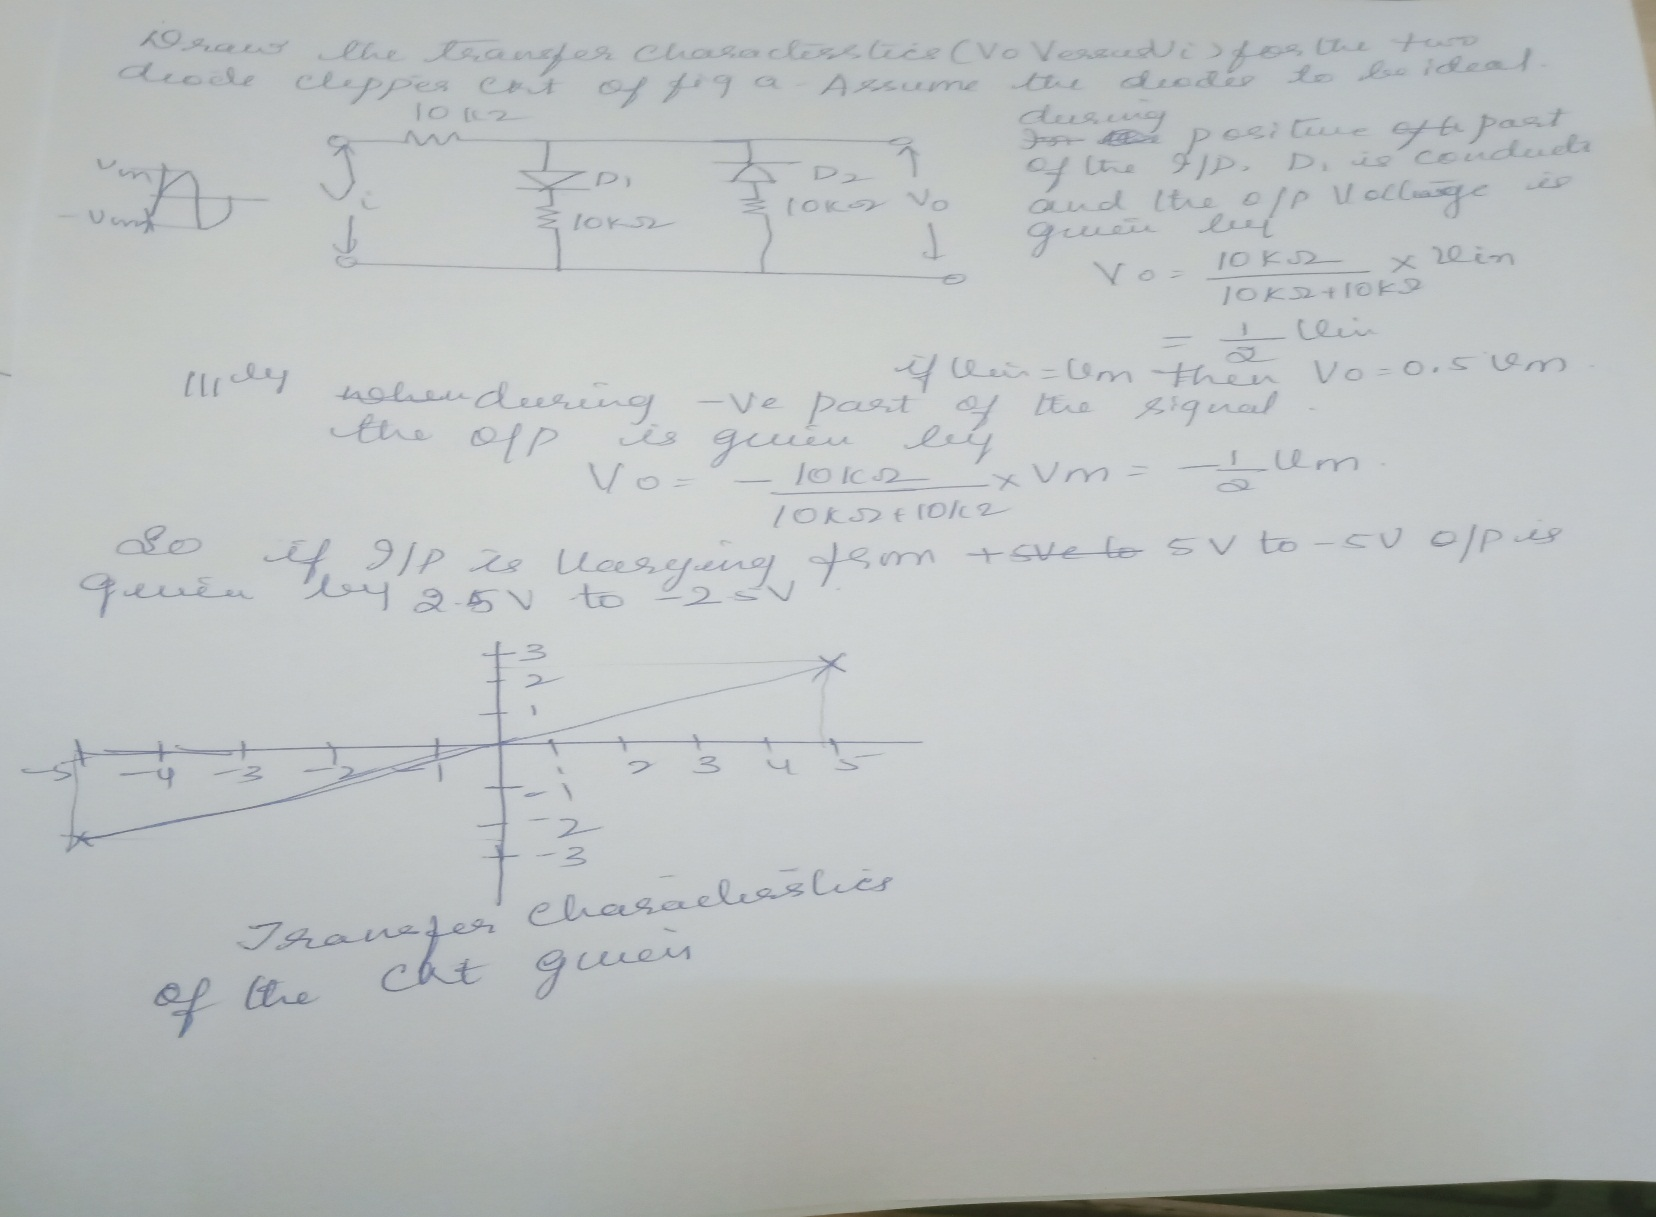 Draw the transfer characteristics (Vo Versus Vi) for the two
diode clipper ckt of fig a - Assume the diodes to be ideal.
10KΩ
Vm
-Vm
Vi
D1
10KΩ
D2
10KΩ
Vo
during
positive part
of the I/P. D1 is conducts
and the o/p Voltage is
given by
Vo = 10KΩ / 10KΩ+10KΩ × Vin
= 1/2 Vin
if Vin = Vm then Vo = 0.5 Vm
111ly when during -ve part of the signal.
the o/p is given by
Vo = - 10KΩ / 10KΩ+10KΩ × Vm = -1/2 Vm.
So if I/P is Varying from +5Ve to 5V to -5V o/p is
given by 2.5V to -2.5V.
3
2
1
-5 -4 -3 -2 -1 1 2 3 4 5
-1
-2
-3
Transfer characteristics
of the ckt given